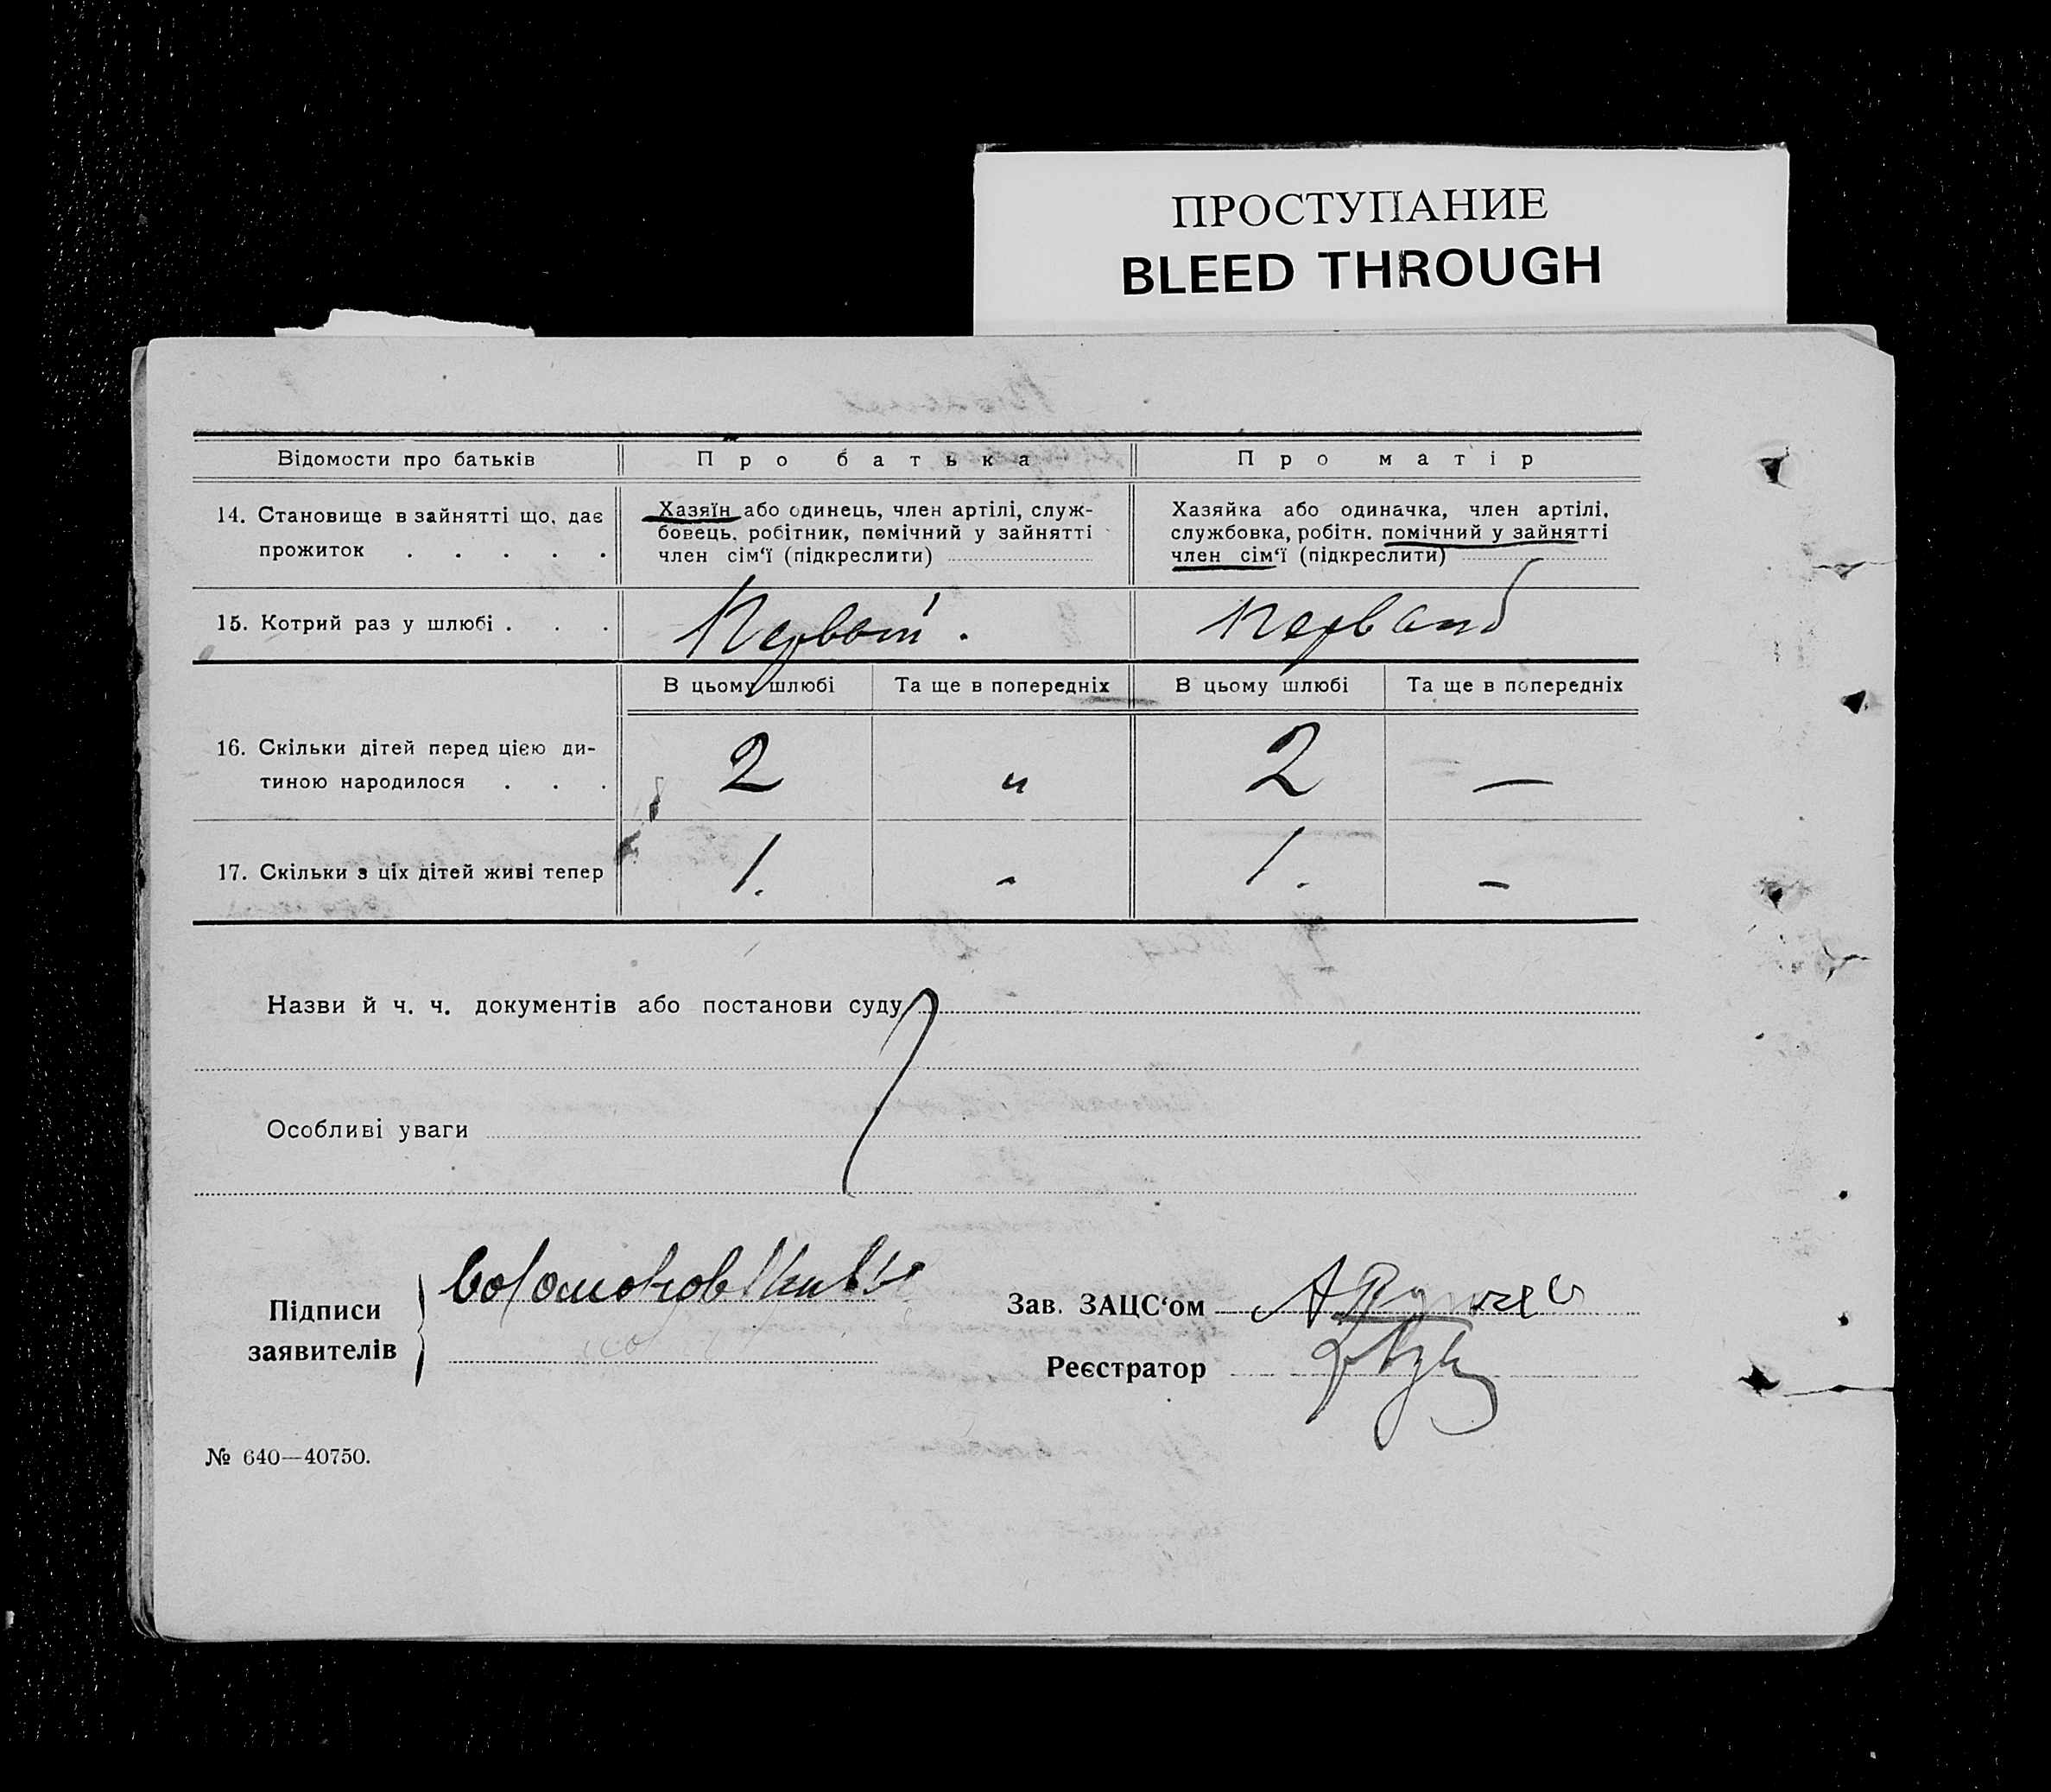 ПРОСТУПАНИЕ
BLEED THROUGH
Відомости про батьків Про батька Про матір
14. Становище в зайнятті що, дає прожиток . . . . .
Хазяїн або одинець, член артілі, служ-
бовець, робітник, помічний у зайнятті
член сім‘ї (підкреслити)
Хазяйка або одиначка, член артілі,
службовка, робітн. помічний у зайнятті
член сім‘ї (підкреслити)
15. Котрий раз у шлюбі . . . Первый .
В цьому шлюбі Та ще в попередніх В цьому шлюбі Та ще в попередніх
16. Скільки дітей перед цією ди-
тиною народилося . . . 2 " 2 —
17. Скільки з ціх дітей живі тепер 1. - 1. -
Назви й ч. ч. документів або постанови суду
Особливі уваги
Підписи
заявителів
Зав. ЗАЦС‘ом
Реєстратор
№ 640—40750.